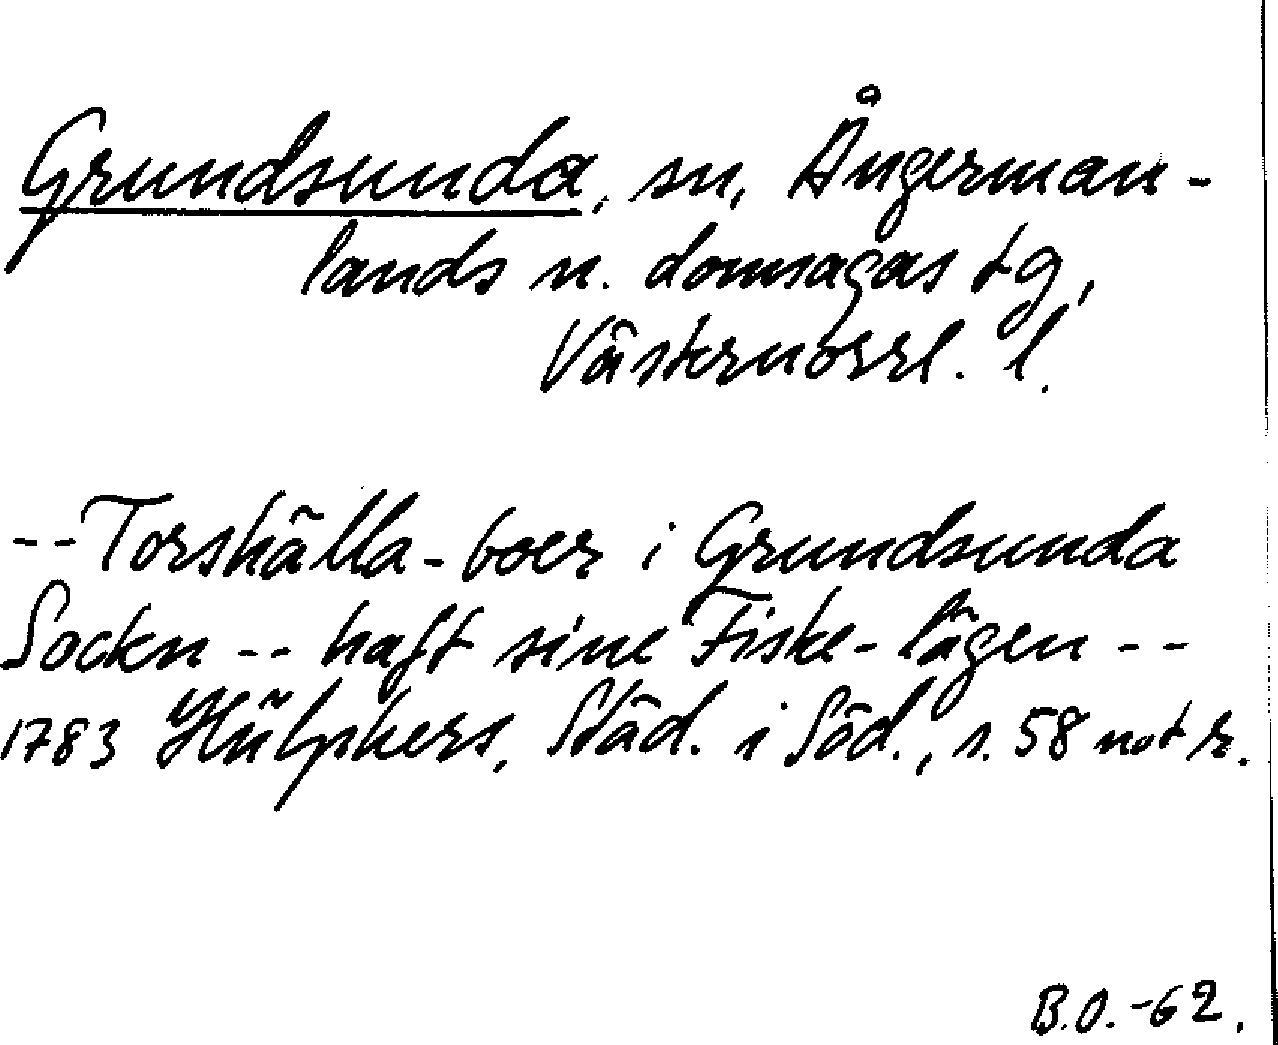 Grundsunda, sn, Ångerman-
lands n. domsagas tg,
Västernorrl. l.
--Torshälla-boer i Grundsunda
Sockn -- haft sine Fiske-lägen --
1783 Hülphers, Städ. i Söd., s. 58 not r.
B.O.-62.